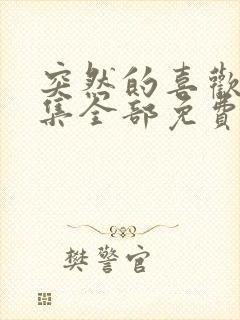 突然的喜歡
集全部免費
樊警官